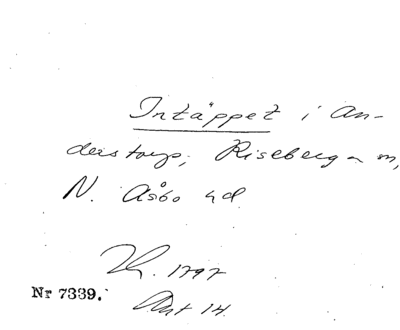 Intäppet i An-
derstorp, Riseberga sn,
N. Åsbo hd.
Lh. 1797
Nr 7339.
Akt 14.